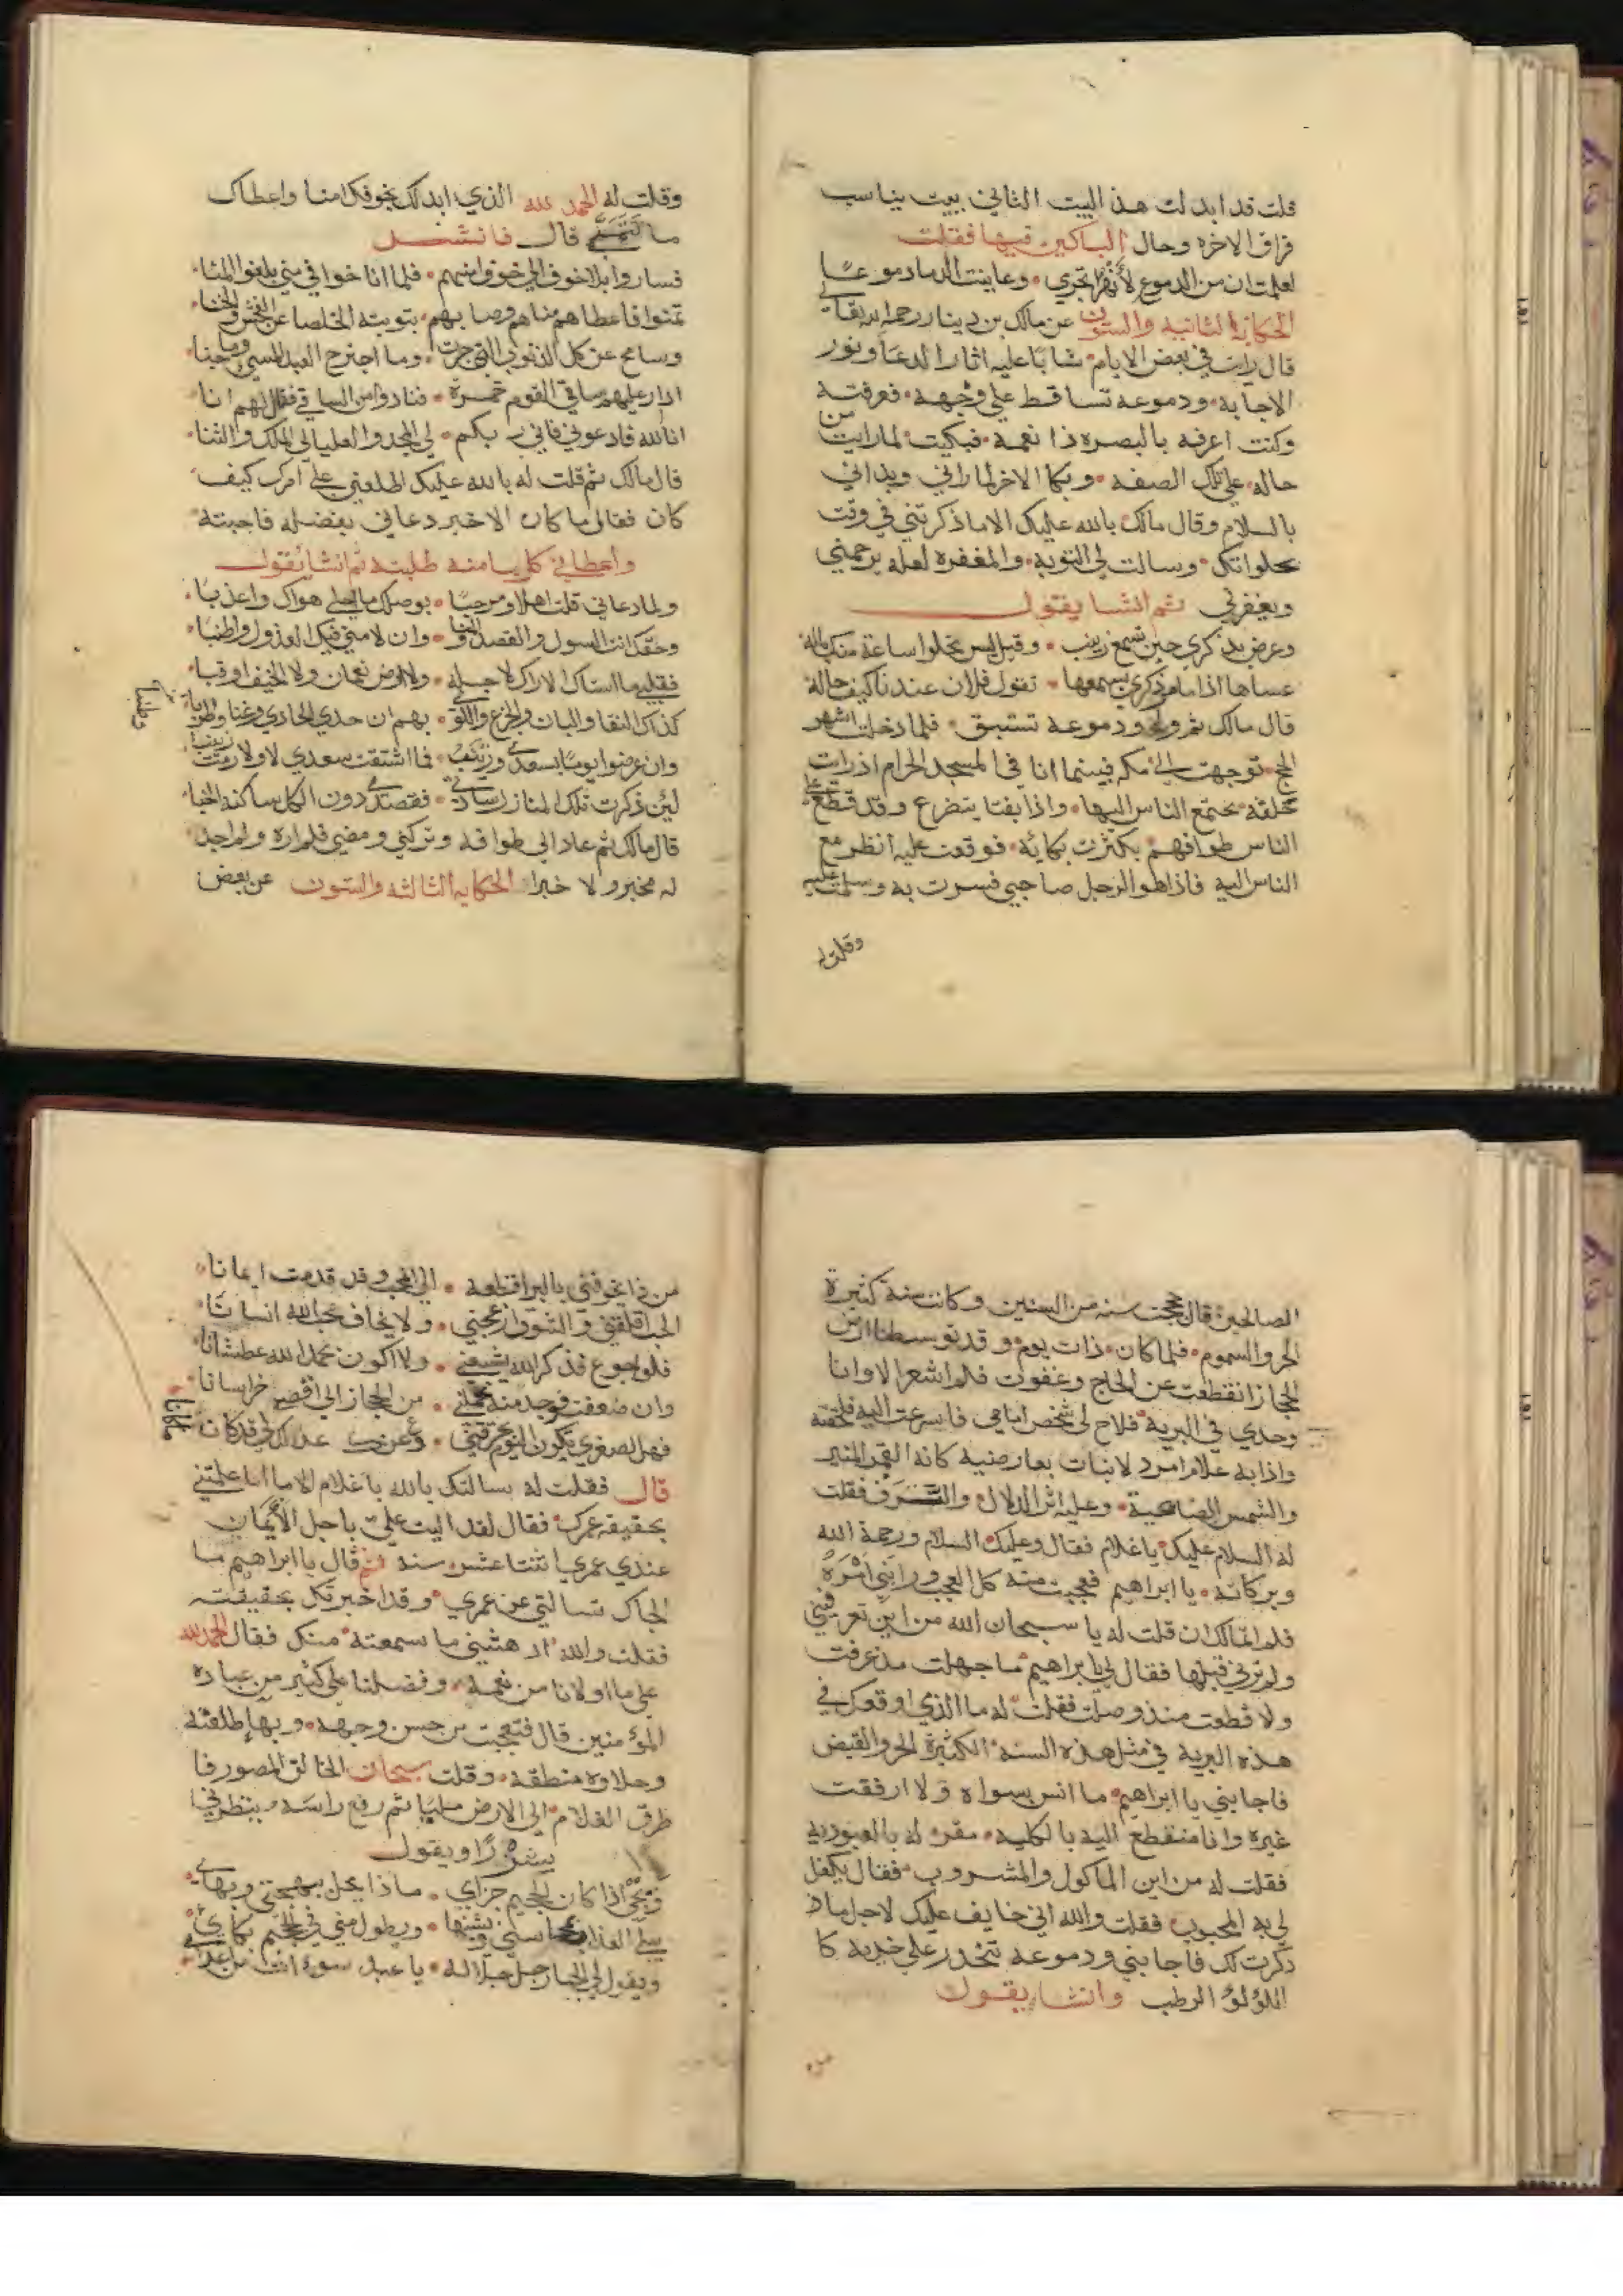 قلت قد ابدلت هذ البيت الثاني ببيت يناسب
فراق الاخره وحال الباكين فيها فقلت
لعلمت ان من الدموع لأنهرا تجري وعاينت الدما دموعا
الحكاية الثانية والستون عن مالك بن دينار رحمه الله تعالى
قال رايت في بعض الايام شابا عليه اثار الدعا ونور
الاجابه ودموعه تساقط علي وجهه فعرفته
وكنت اعرفه بالبصره ذا نعمة فبكيت لما رايت من
حاله علي تلك الصفه وبكا الاخر لما راني وبداني
بالسلام وقال مالك بالله عليك الا ما ذكرتني في وقت
خلواتك وسالت لي التوبه والمغفره لعله يرحمني
ويغفرلي ثم انشا يقول
وعرض بذكري حين تسمع زينب وقل ليس يخلوا ساعة منك باله
عساها اذا ما مر ذكري بسمعها تقول فلان عندنا كيف حاله
قال مالك ثم ولي ودموعه تستبق فلما دخلت اشهر
الحج توجهت الي مكه فبينما انا في المسجد الحرام اذ رايت
حلقة يجتمع الناس اليها واذا بفتا يتضرع وقد قطع علي
الناس طوافهم بكثرت بكائه فوقفت عليه انظر مع
الناس اليه فاذا هو الرجل صاحبي فسررت به وسلمت عليه
وقلت له
وقلت له الحمد لله الذي ابدلك بخوفك امنا واعطاك
ما تتمني قال فانشد
فساروا بلا خوف الي خيف امنهم فلما اناخوا في مني بلغوا المنا
تمنوا فاعطاهم مناهم وصابهم بتوبته الخلصا عن الفحش والخنا
وسامح عن كل الذنوب التي جرت وما اجترح العبد المسي وما جنا
ادار عليهم ساقي القوم خمرة فنادوا من الساقي فقال لهم انا
انا الله فادعوني فاني ربكم لي المجد والعليا لي الملك والثنا
قال مالك ثم قلت له بالله عليك اطلعني علي امرك كيف
كان فقال ما كان الا خير دعاني بفضله فاجبته
واعطاني كل ما منه طلبته ثم انشا يقول
ولما دعاني قلت اهلا ومرحبا بوصلك ما احلي هواك واعذبا
وحقك انت السول والقصد والمنا وان لامني فيك العذول واطنبا
فقلبي ما اشتاك الاراك لاجله ولا ارض نعمان ولا الخيف اوقبا
كذاك النقا والبان والجزع واللوي بهم ان حدي الحادي وغنا واطربا
وطنبا
وان عرضوا يوما بسعدي وزينب فما اشتقت سعدي لا ولا رمت زينبا
لين ذكرت تلك المنازل سادتي فقصدي دون الكل ساكنة الخبا
قال مالك ثم عاد الي طوافه وتركني ومضي فلم اره ولم اجد
له مخبر ولا خبرا الحكايه الثالثه والستون عن بعض
الصالحين قال حججت سنه من السنين وكانت سنة كثيرة
الحر والسموم فلما كان ذات يوم وقد توسطنا ارض
الحجاز انقطعت عن الحاج وغفوت فلم اشعر الا وانا
وحدي في البرية فلاح لي شخص امامي فاسرعت اليه فلحقته
واذا به غلام امرد لا نبات بعارضيه كانه القمر المنير
والشمس الضاحية وعليه اثر الدلال والترف فقلت
له السلام عليك يا غلام فقال وعليك السلام ورحمة الله
وبركاته يا ابراهيم فعجبت منه كل العجب ورابني امره
فلم اتمالك ان قلت له يا سبحان الله من اين تعرفني
ولم ترني قبلها فقال لي يا ابراهيم ما جهلت مذ عرفت
ولا قطعت منذ وصلت فقلت له ما الذي اوقعك في
هذه البرية في مثل هذه السنة الكثيرة الحر والقيض
فاجابني يا ابراهيم ما انس بسواه ولا ارفقت
غيره وانا منقطع اليه بالكليه مقر له بالعبوديه
فقلت له من اين الماكول والمشروب فقال يكفل
لي به المحبوب فقلت والله اني خايف عليك لاجل ما ذ
ذكرت لك فاجابني ودموعه تتحدر علي خديه كا
اللولؤ الرطب وانشا يقول
من ذا يخوفني بالبر اقطعه الي المحب وقد قدمت ايمانا
الحب اقلقني والشوق ازعجني ولا يخاف محب الله انسانا
فلو اجوع فذكر الله يشبعني ولا اكون بحمد الله عطشانا
وان ضعفت فوجد منه يحملني من الحجاز الي اقصي خراسانا
فهل لصغري يكون اليوم تحرقني دع عنك عذلك لي قد كان
ما كانا
قال فقلت له سالتك بالله يا غلام الا ما اعلمتني
بحقيقة عمرك فقال لقد اليت علي باجل الأيمان
عندي عمري اثنتا عشر سنه ثم قال يا ابراهيم ما
الجاك تسالني عن عمري وقد اخبرتك بحقيقته
فقلت والله ادهشني ما سمعته منك فقال الحمد لله
علي ما اولانا من نعمه وفضلنا علي كثير من عباده
المؤمنين قال فتعجبت من حسن وجهه وبها طلعته
وحلاوة منطقه وقلت سبحان الخالق المصور فا
طرق الغلام الي الارض مليا ثم رفع راسه وينظر في
ويقول
ويحي اذا كان الجحيم جزاي ماذا يحل ببهجتي وبهاي
يبلي العذاب محاسني ويشينها ويطول مني في الجحيم بكاي
ويقول لي الجبار جل جلاله يا عبد سوء انت من اعداي